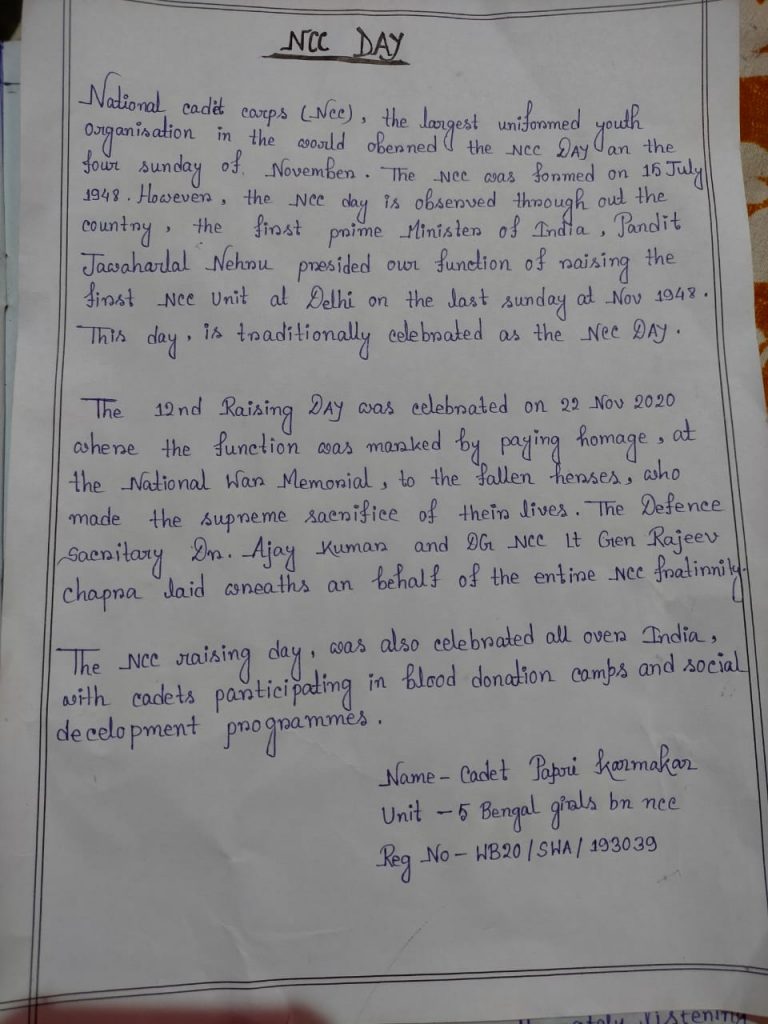 NCC DAY
National cadet carps (Ncc), the largest uniformed youth
organisation in the world obenned the NCC DAY an the
four sunday of November. The NCC was formed on 15 July
1948. However, the NCC day is observed through out the
country, the first prime Minister of India, Pandit
Jawaharlal Nehru presided our function of raising the
first NCC Unit at Delhi on the last sunday at Nov 1948.
This day, is traditionally celebrated as the NCC DAY.
The 12nd Raising DAY was celebrated on 22 Nov 2020
where the function was marked by paying homage, at
the National War Memorial, to the fallen herses, who
made the supreme sacrifice of their lives. The Defence
sacritary Dr. Ajay Kumar and DG NCC Lt Gen Rajeev
chapra laid wreaths an behalf of the entire NCC fratinnity.
The NCC raising day, was also celebrated all over India,
with cadets participating in blood donation camps and social
decelopment programmes.
Name - Cadet Papri Karmakar
Unit - 5 Bengal girals bn ncc
Reg No - WB20/SWA/193039
listening